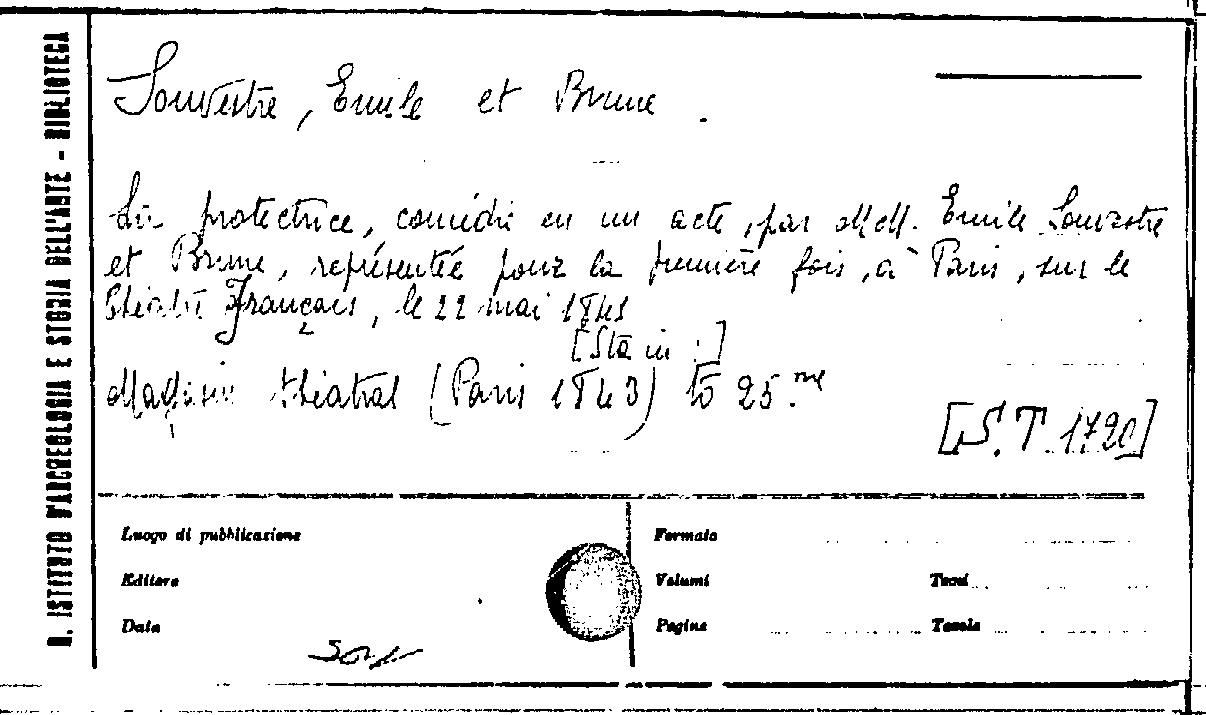 R. ISTITUTO D'ARCHEOLOGIA E STORIA DELL'ARTE - BIBLIOTECA
Souvestre, Emile et Brune.
La protectrice, comédie en un acte, par MM. Emile Souvestre
et Brune, représentée pour la première fois, à Paris, sur le
théatre Français, le 22 mai 1841
[Sta in:]
Magasin théatral (Paris 1843) to 25.me
[S.T. 1720]
Luogo di pubblicazione
Formato
Editore
Volumi
Tomi
Data
Pagine
Tavole